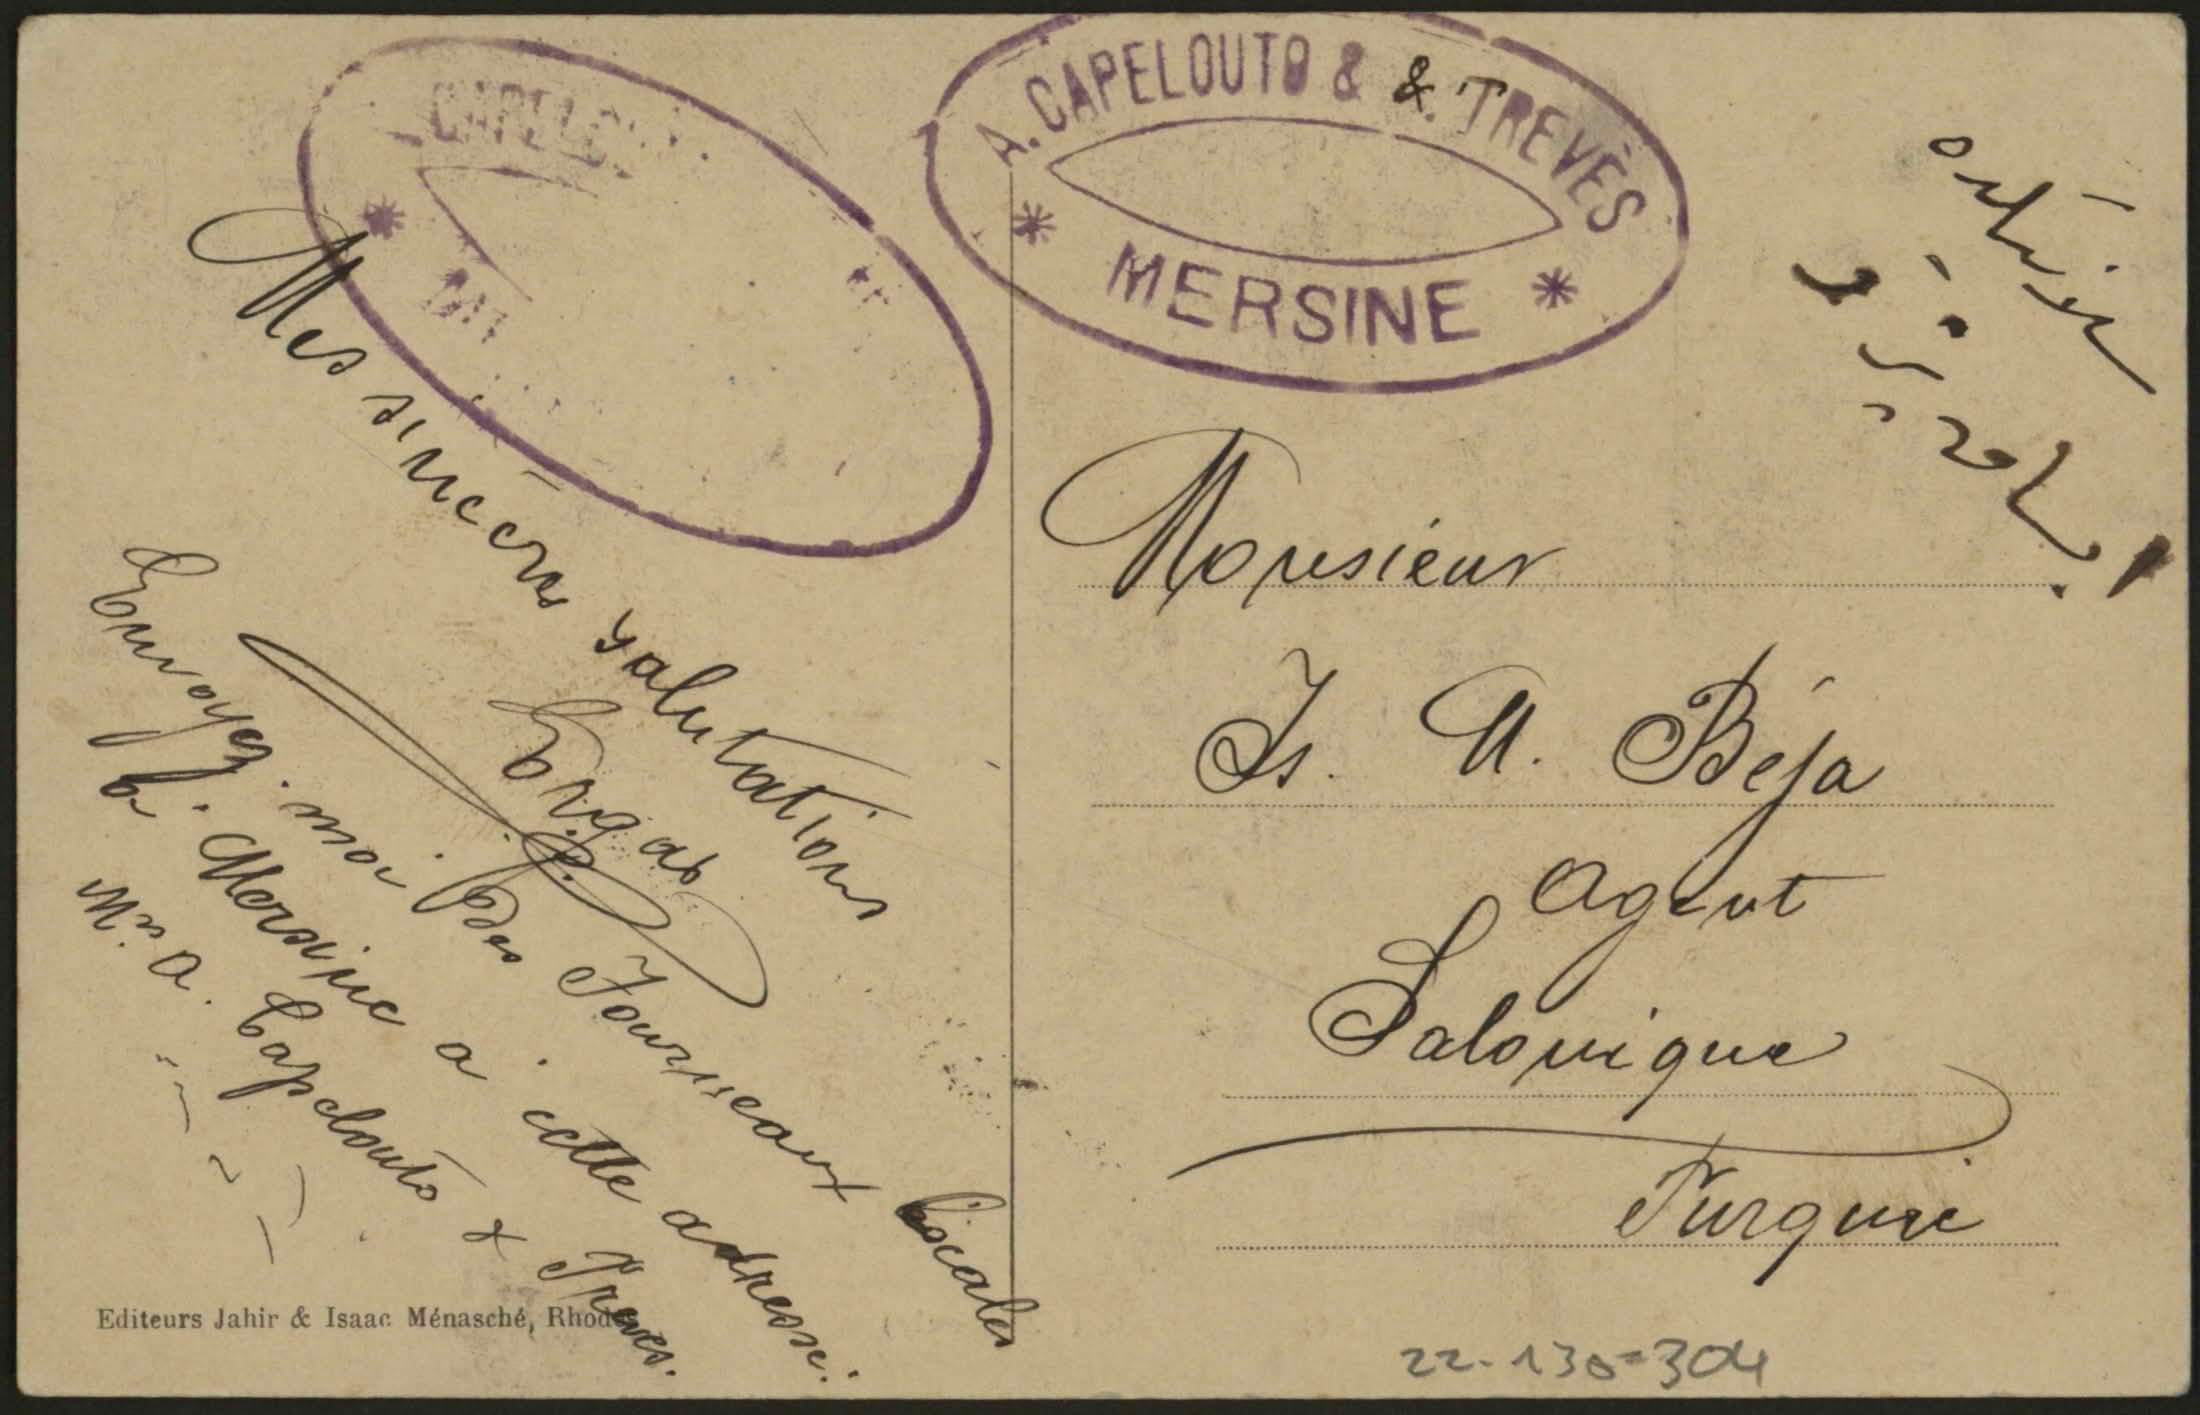 CAPELOU
A. CAPELOUTO & &. TREVÈS
* MERSINE *
سلانيكده
Mes sincères salutations
Envoyez-moi des Fourneaux
à Mersine à cette adresse:
Mrs. A. Capelouto & Treves.
Monsieur
Is. A. Béja
Agent
Salonique
Turquie
Editeurs Jahir & Isaac Ménasché, Rhodes
22-130-304